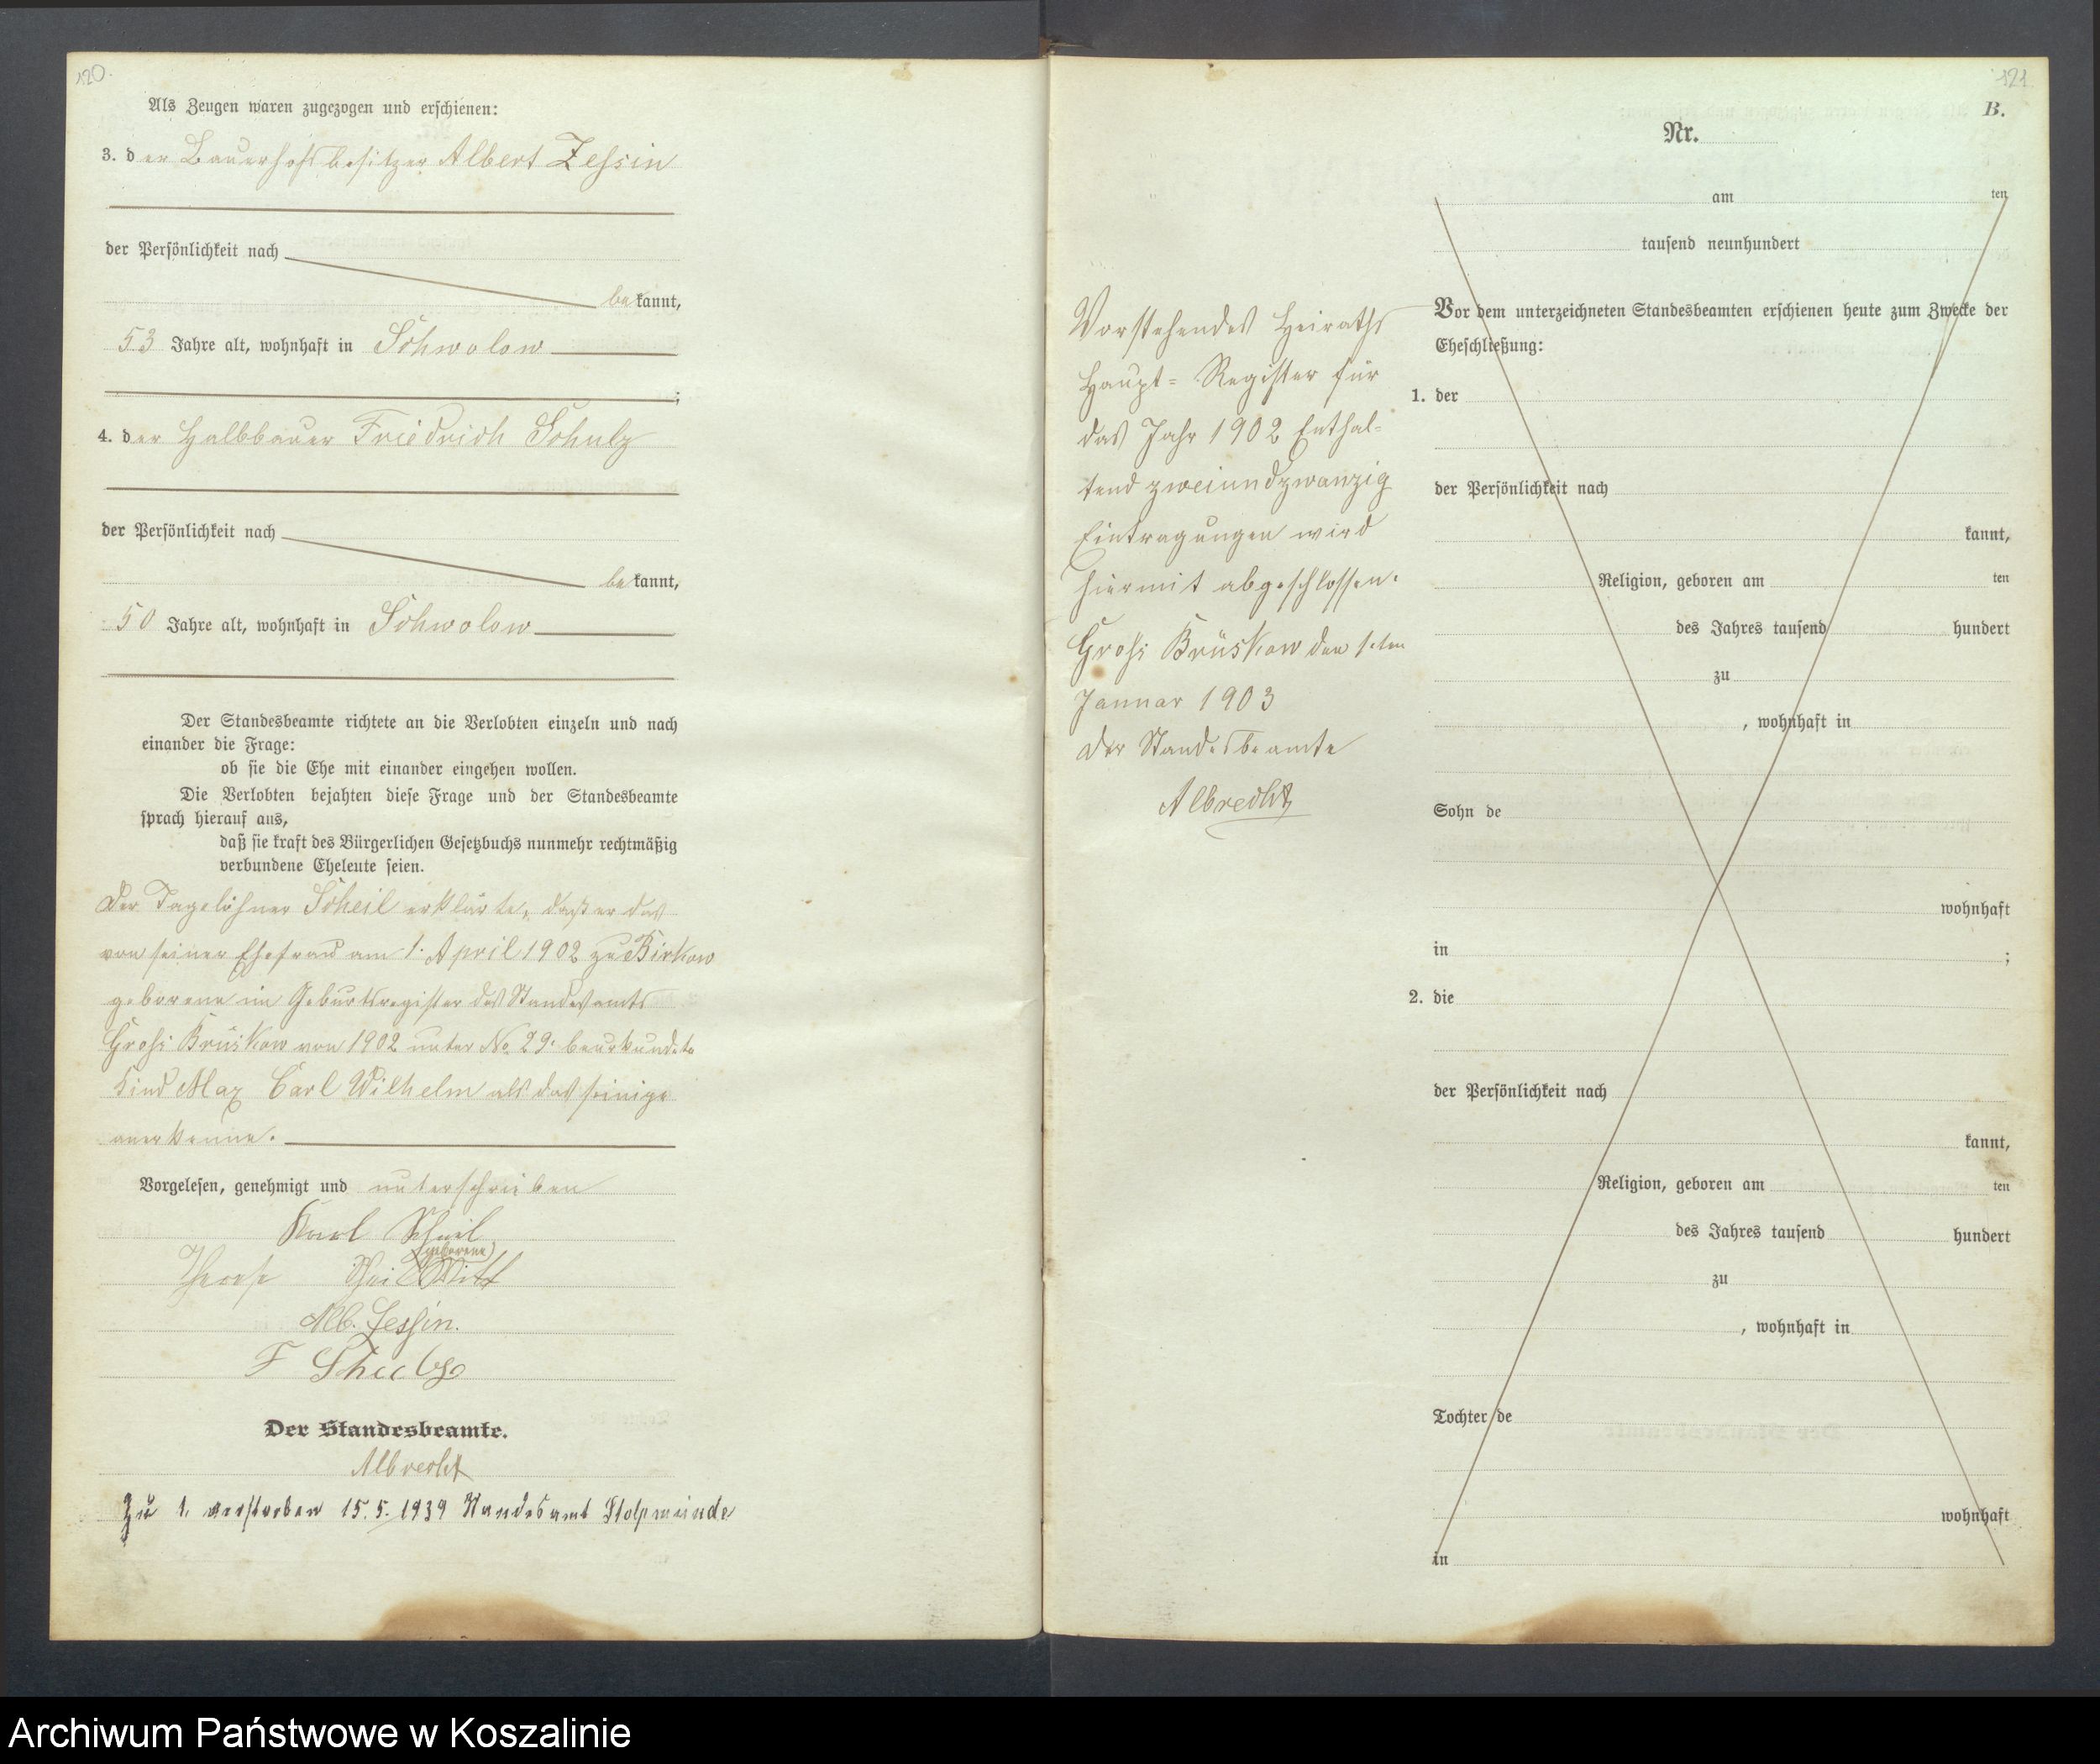 120.
Als Zeugen waren zugezogen und erschienen:
3. der Bauerhofsbesitzer Albert Zessin
der Persönlichkeit nach
bekannt,
53 Jahre alt, wohnhaft in Schwolow
;
4. der Halbbauer Friedrich Schulz
der Persönlichkeit nach
bekannt,
50 Jahre alt, wohnhaft in Schwolow
Der Standesbeamte richtete an die Verlobten einzeln und nach
einander die Frage:
ob sie die Ehe mit einander eingehen wollen.
Die Verlobten bejahten diese Frage und der Standesbeamte
sprach hierauf aus,
daß sie kraft des Bürgerlichen Gesetzbuchs nunmehr rechtmäßig
verbundene Eheleute seien.
Der Tagelöhner Scheil erklärte, daß er das
von seiner Ehefrau am 1. April 1902 zu Birkow
geborene im Geburtsregister des Standesamts
Gross Brüskow von 1902 unter No 29. beurkundete
Kind Max Carl Wilhelm als das seinige
anerkenne.
Vorgelesen, genehmigt und unterschrieben
Karl Scheil
(geborene)
Witt
Alb. Zessin.
F Schulz
Der Standesbeamte.
Albrecht
Zu 1. verstorben 15.5.1939 Standesamt Stolpmünde
121
B.
Nr.
am ten
tausend neunhundert
Vor dem unterzeichneten Standesbeamten erschienen heute zum Zwecke der
Eheschließung:
1. der
der Persönlichkeit nach
kannt,
Religion, geboren am ten
des Jahres tausend hundert
zu
, wohnhaft in
Sohn de
wohnhaft
in ;
2. die
der Persönlichkeit nach
kannt,
Religion, geboren am ten
des Jahres tausend hundert
zu
, wohnhaft in
Tochter de
wohnhaft
in
Vorstehendes Heiraths
Haupt= Register für
das Jahr 1902 Enthal=
tend zweiundzwanzig
Eintragungen wird
hiermit abgeschlossen.
Gross Brüskow den 1.ten
Januar 1903
Der Standesbeamte
Albrecht
Archiwum Państwowe w Koszalinie